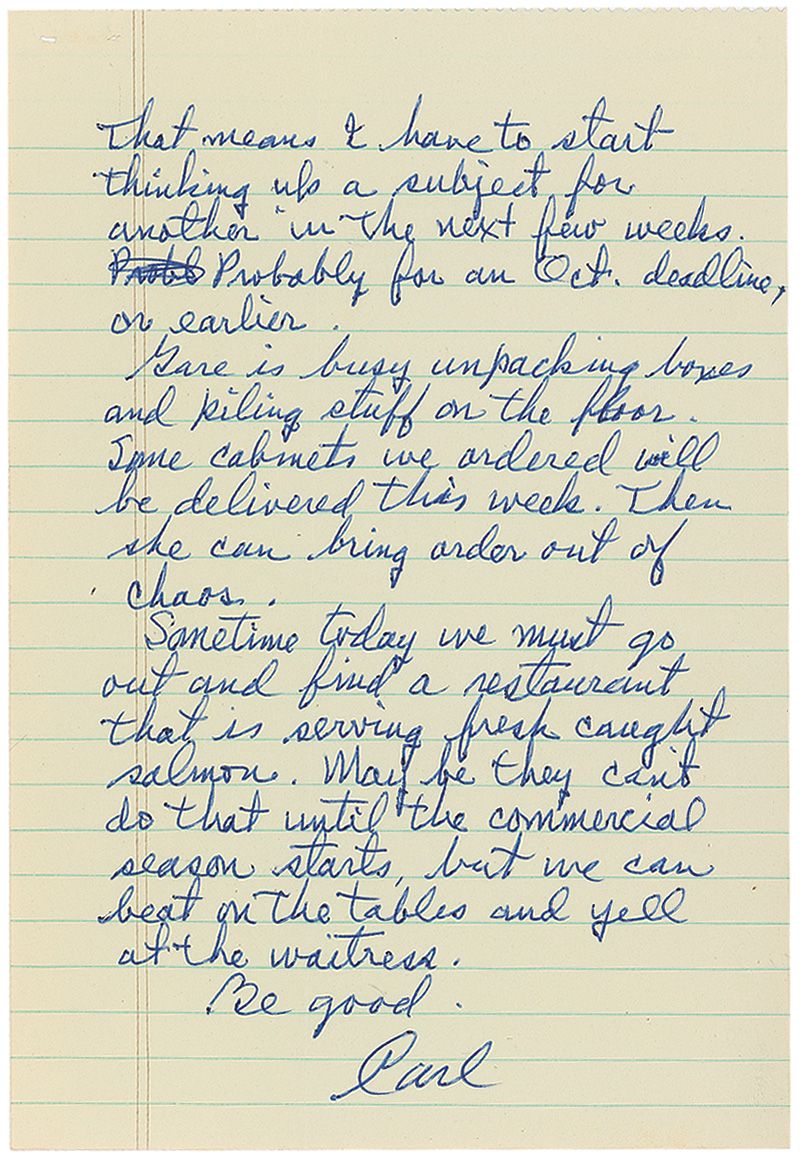 That means I have to start
thinking up a subject for
another in the next few weeks.
Probably for an Oct. deadline,
or earlier.
Gare is busy unpacking boxes
and piling stuff on the floor.
Some cabinets we ordered will
be delivered this week. Then
she can bring order out of
chaos.
Sometime today we must go
out and find a restaurant
that is serving fresh caught
salmon. May be they can't
do that until the commercial
season starts, but we can
beat on the tables and yell
at the waitress.
Be good.
Carl